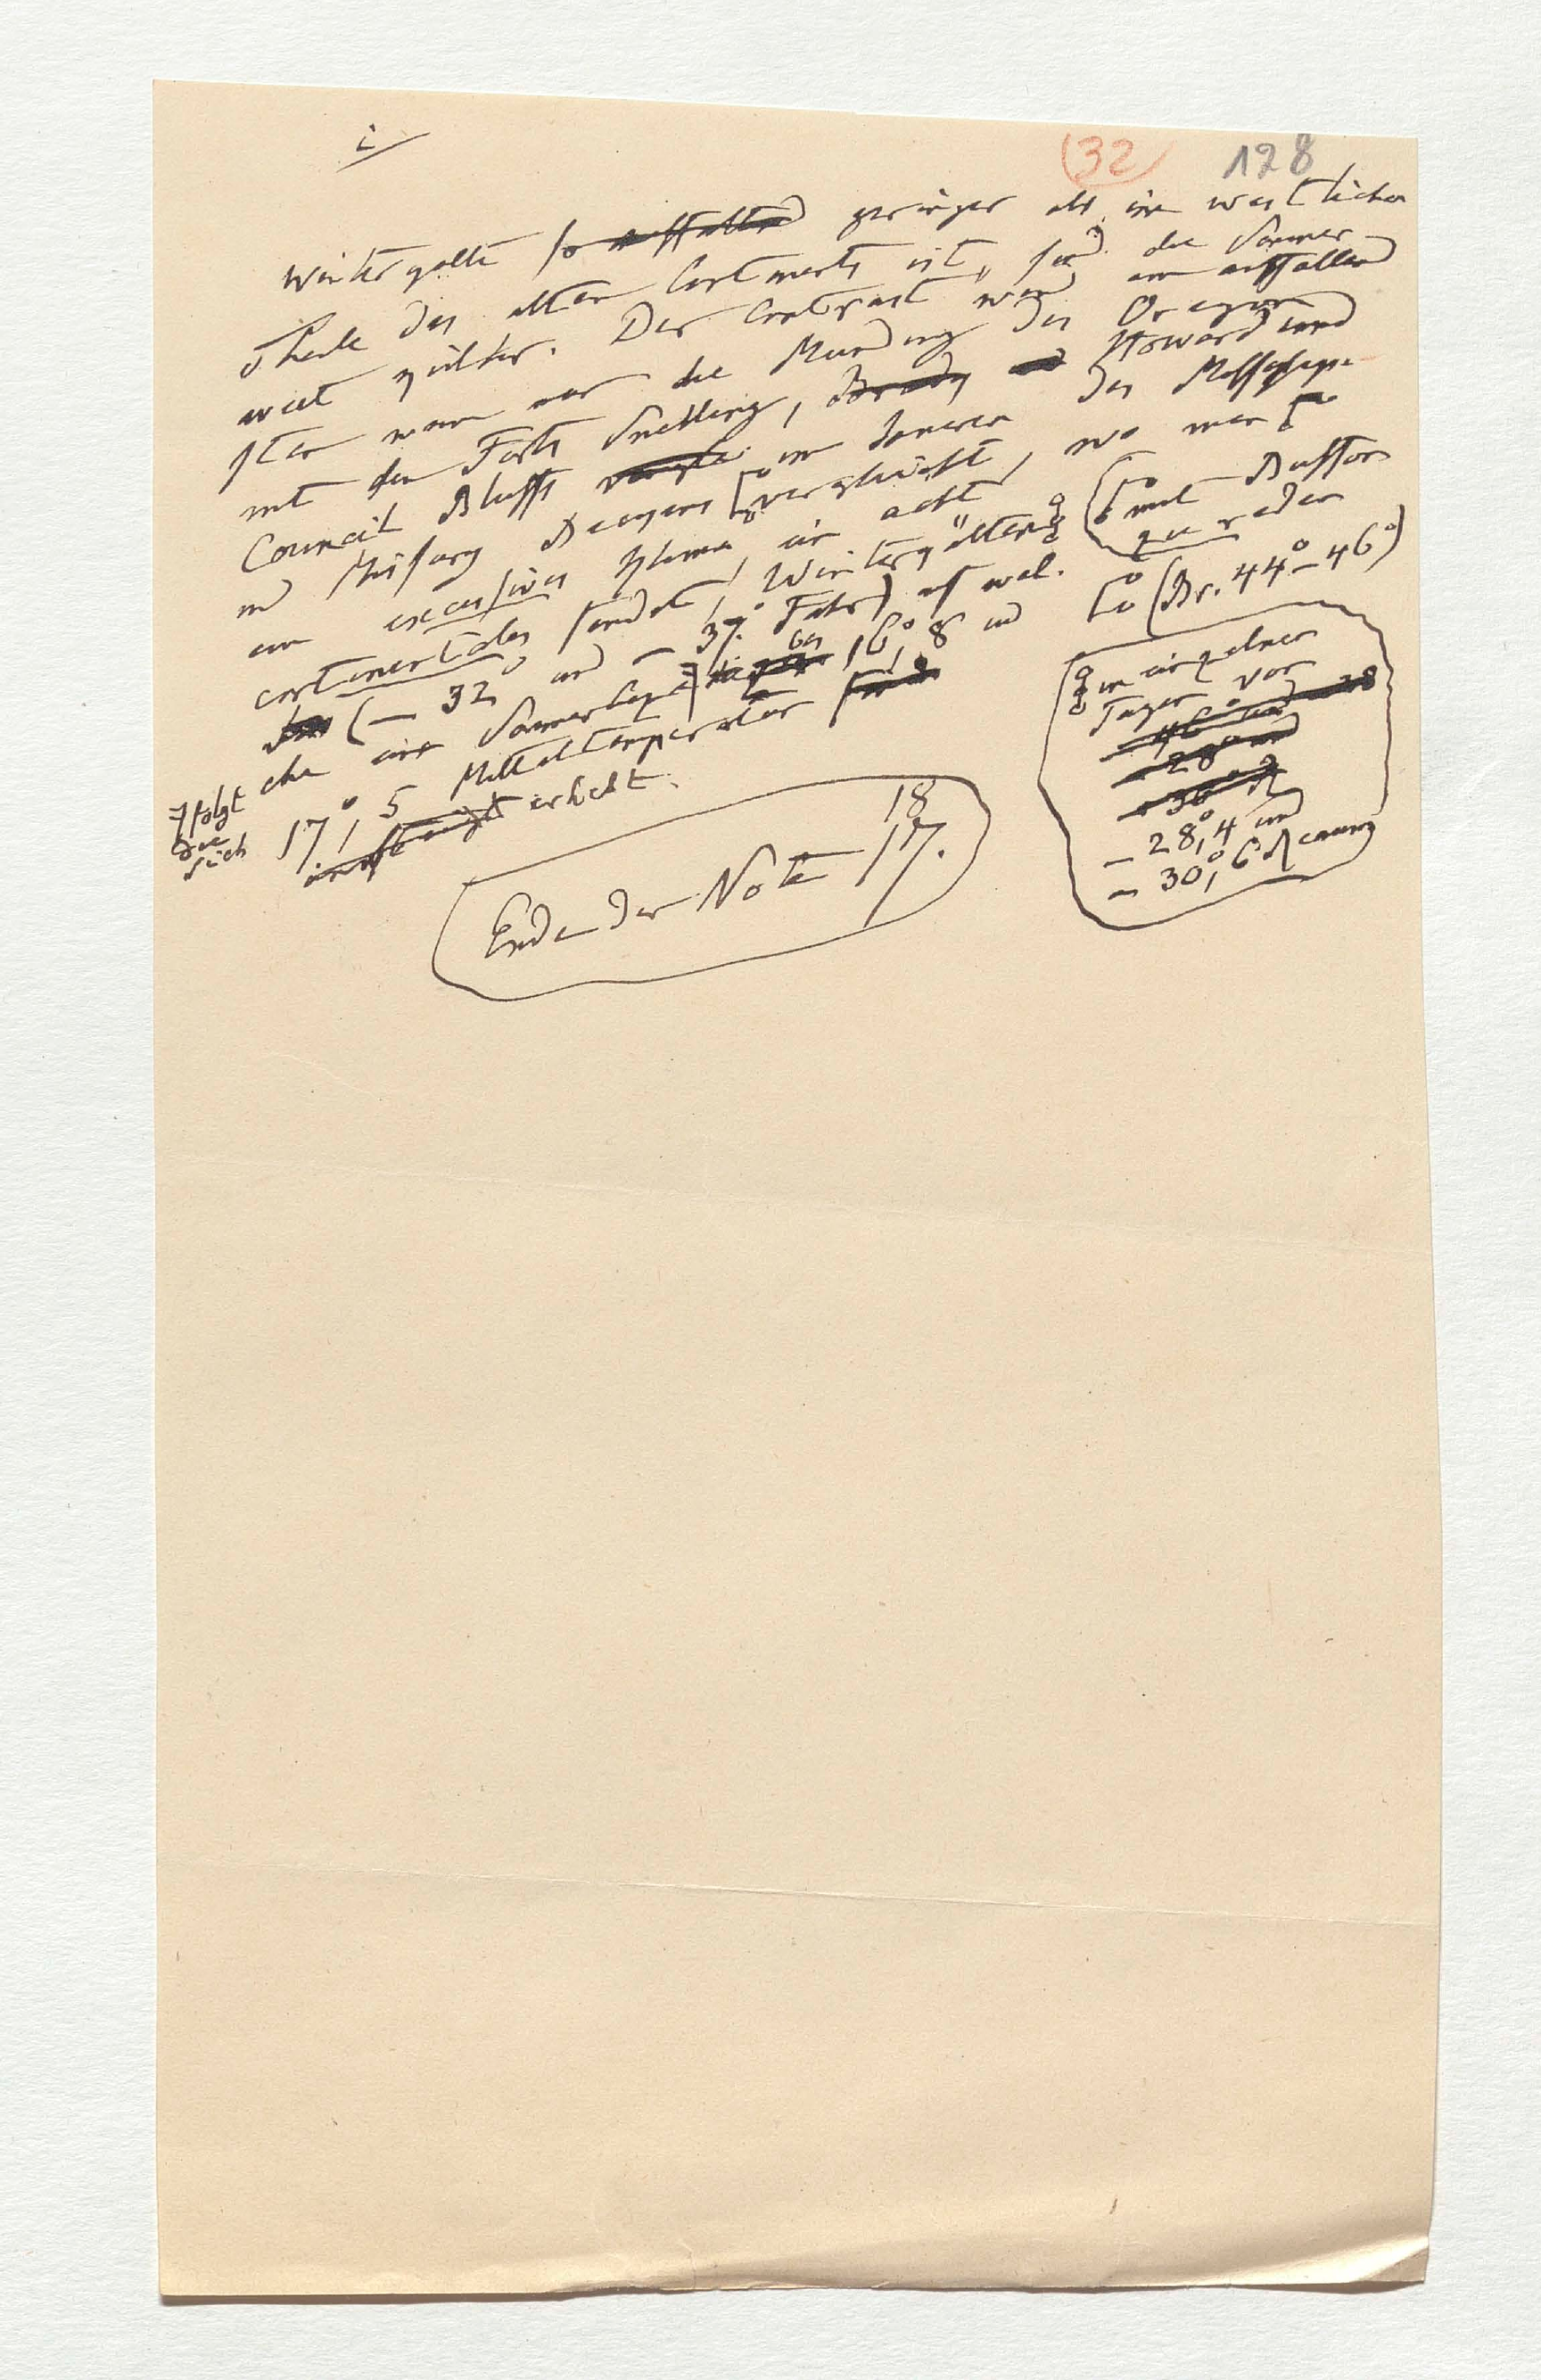 i
(32) 128
Winterkälte so auffallend geringer als im westlichen
Theile des alten Continents ist, sind die Sommer
weit kühler. Der Contrast wird am auffallend
sten wenn man die Mündung des Oregon
mit den Forts Snelling, Howard und
Council Bluffs im Inneren des Mississippi
und Missury Beckens vergleicht, wo man
ein excessives Klima, ein acht
continentales findet, Winterkälten
(– 32° und – 37° Fahr) auf wel-
che eine Sommer bis 16°,8 und
17°,5 Mitteltemperatur
erhebt.
folgt
die
sich
mit Buffon
zu reden
(Br. 44°–46°)
in einzelnen
Tagen von
– 28°,4 und
– 30°,6 Reaumur
Ende der Note 17.
18